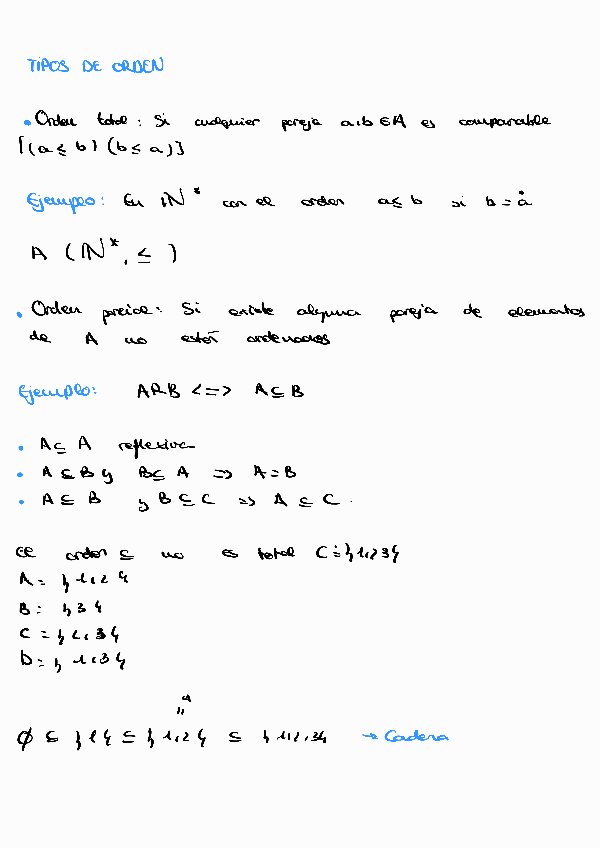 TIPOS DE ORDEN
• Orden total: Si cualquier pareja a,b ∈ A es comparable
[(a ≤ b) (b ≤ a)]
Ejemplo: En ℕ* con el orden a ≤ b si b = ȧ
A (ℕ*, ≤)
• Orden parcial: Si existe alguna pareja de elementos
de A no están ordenados
Ejemplo: A R B <=> A ⊆ B
• A ⊆ A reflexiva
• A ⊆ B y B ⊆ A => A = B
• A ⊆ B y B ⊆ C => A ⊆ C.
El orden ⊆ no es total C = {1,2,3}
A = {1,2}
B = {3}
C = {2,3}
D = {1,3}
A
"
∅ ⊆ {1} ⊆ {1,2} ⊆ {1,2,3} → Cadena